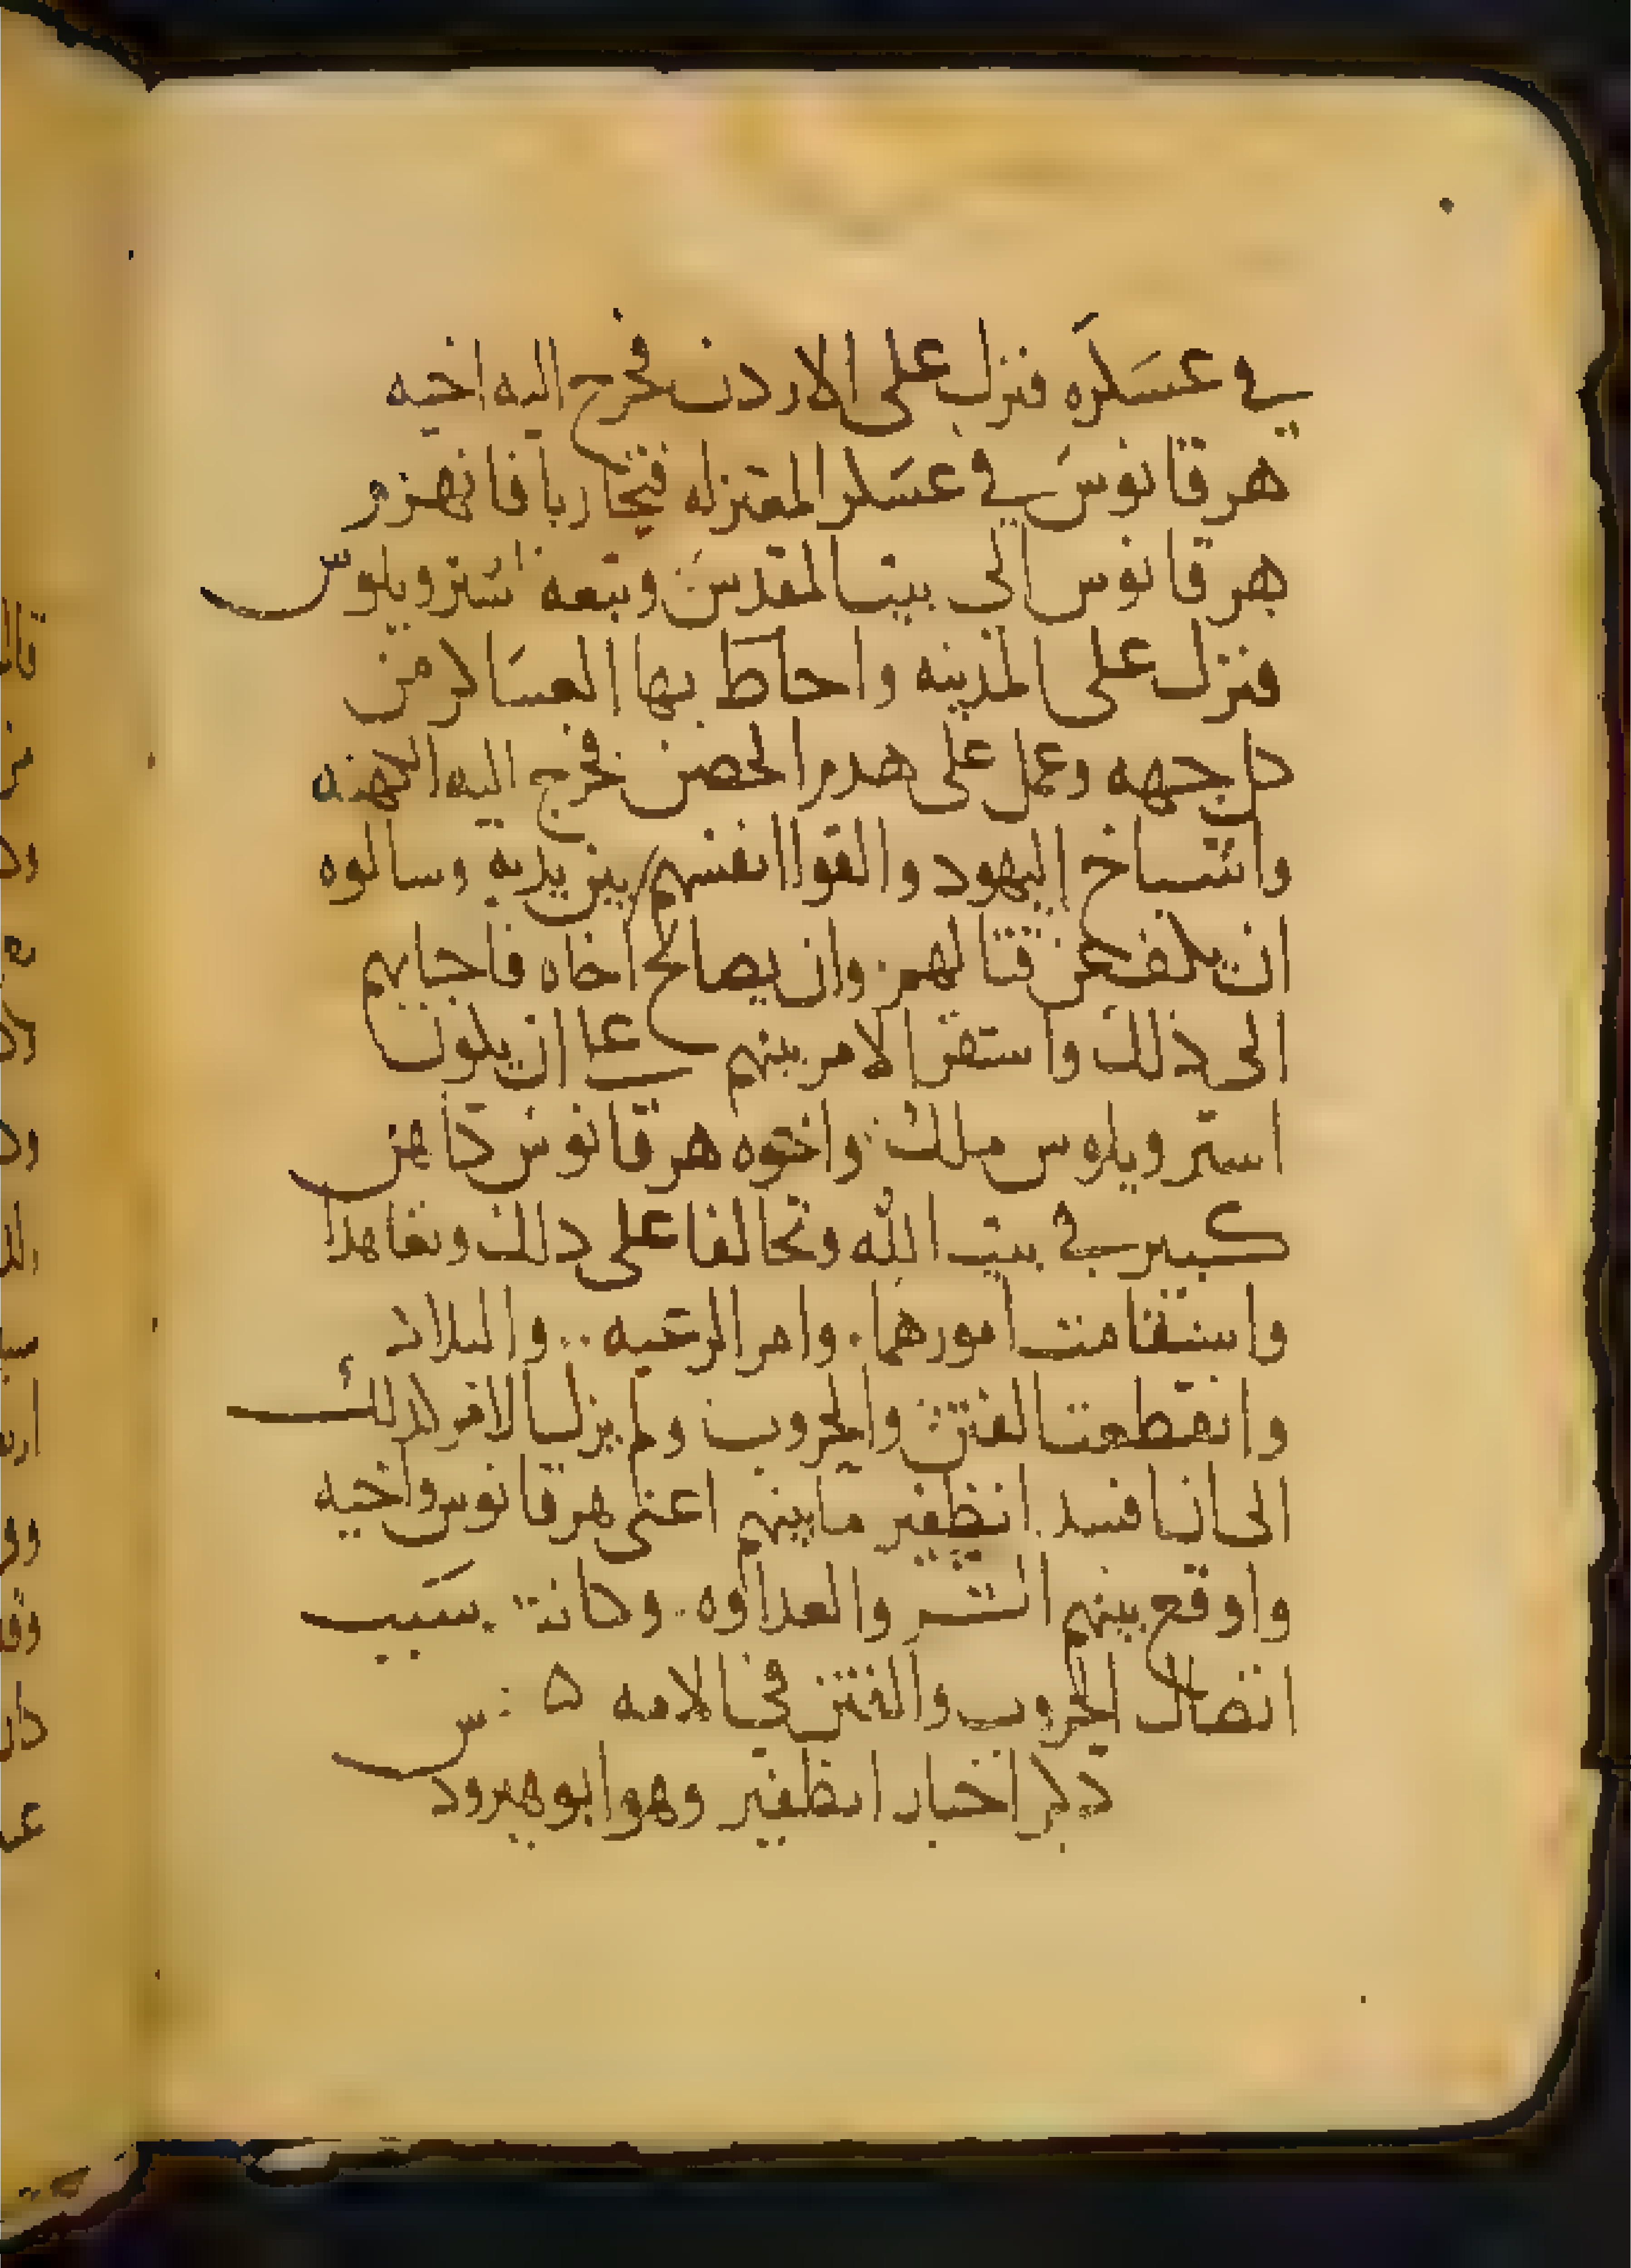 في عسكره فنزل على الاردن فخرج اليه اخيه
هرقانوس في عسكر المعتزله فتحاربا فانهزو
هرقانوس الى بيت المقدس وتبعه استروبلوس
فنزل على المدينه واحاط بها العساكر من
كل جهه وعمل على هدم الحصن فخرج اليه الكهنه
واشياخ اليهود والقوا انفسهم بين يديه وسالوه
ان يكف عن قتالهم وان يصالح اخاه فاجابهم
الى ذلك واستقر الامر بينهم على ان يكون
استروبلوس ملك واخوه هرقانوس كاهن
كبير في بيت الله وتحالفا على دلك وتعاهدا
واستقامت امورهما . وامر الرعيه .. والبلاد
وانقطعت الفتن والحروب ولم يزل الامر كدلك
الى ان افسد انظفير ما بينهم اعنى هرقانوس واخيه
واوقع بينهم الشر والعداوه .. وكانت بسبب
اتصال الحروب والفتن في الامه
ذكر اخبار انظفير وهو ابو هيرودس